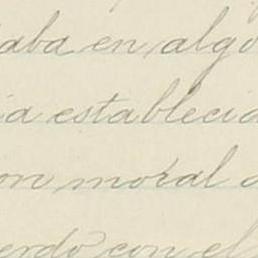 aba en algo
ia establecid
on moral a
erdo con el